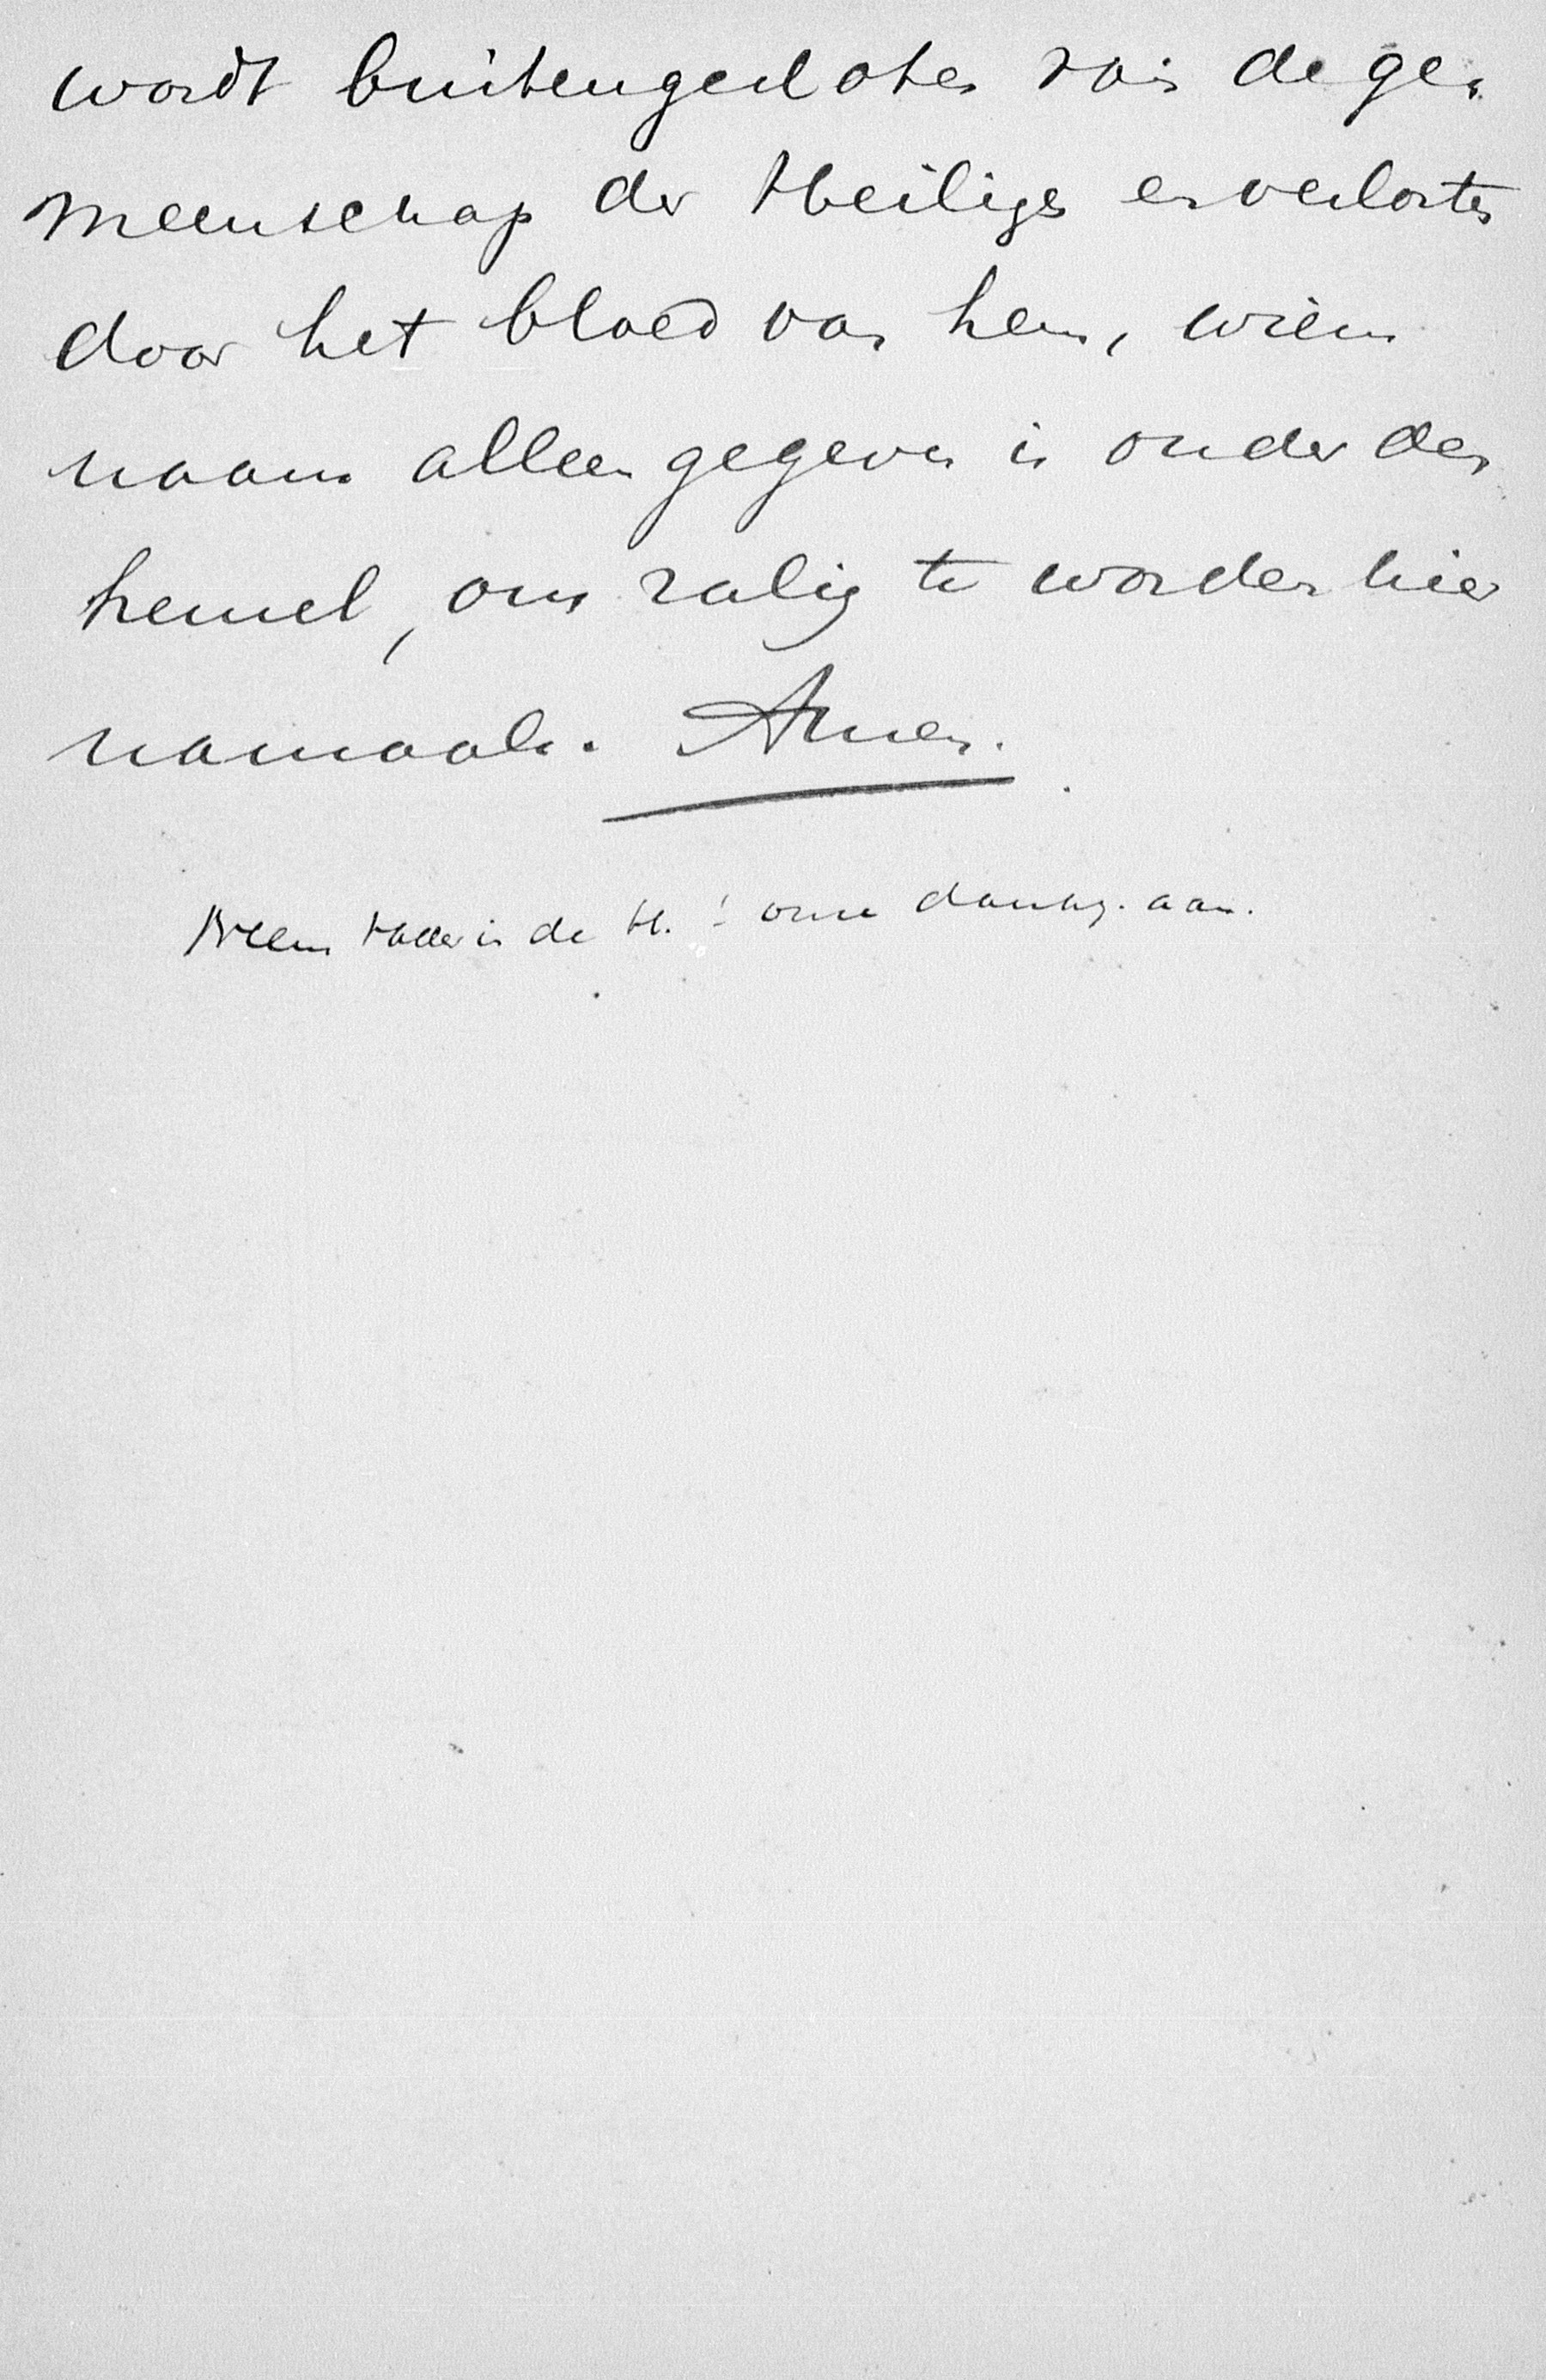 wordt buitengesloten van de ge-
meenschap der Heiligen en verlosten
door het bloed van hem, wiens
naam alleen gegeven is onder den
hemel, om zalig te worden hier
namaals. Amen.
Neem Vader in de H. ! onze dankz. aan.